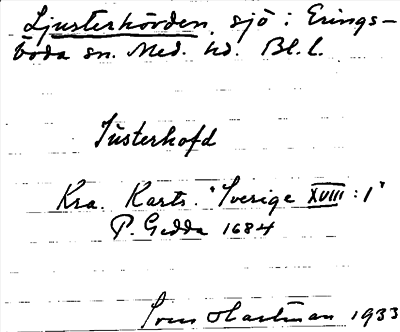 Ljusterhövden, sjö i Erings-
boda sn. Med. hd. Bl. l.
Jüsterhofd
Kra. Kartv. "Sverige XVIII:1"
P. Gedda 1684
Sven Hartman 1933